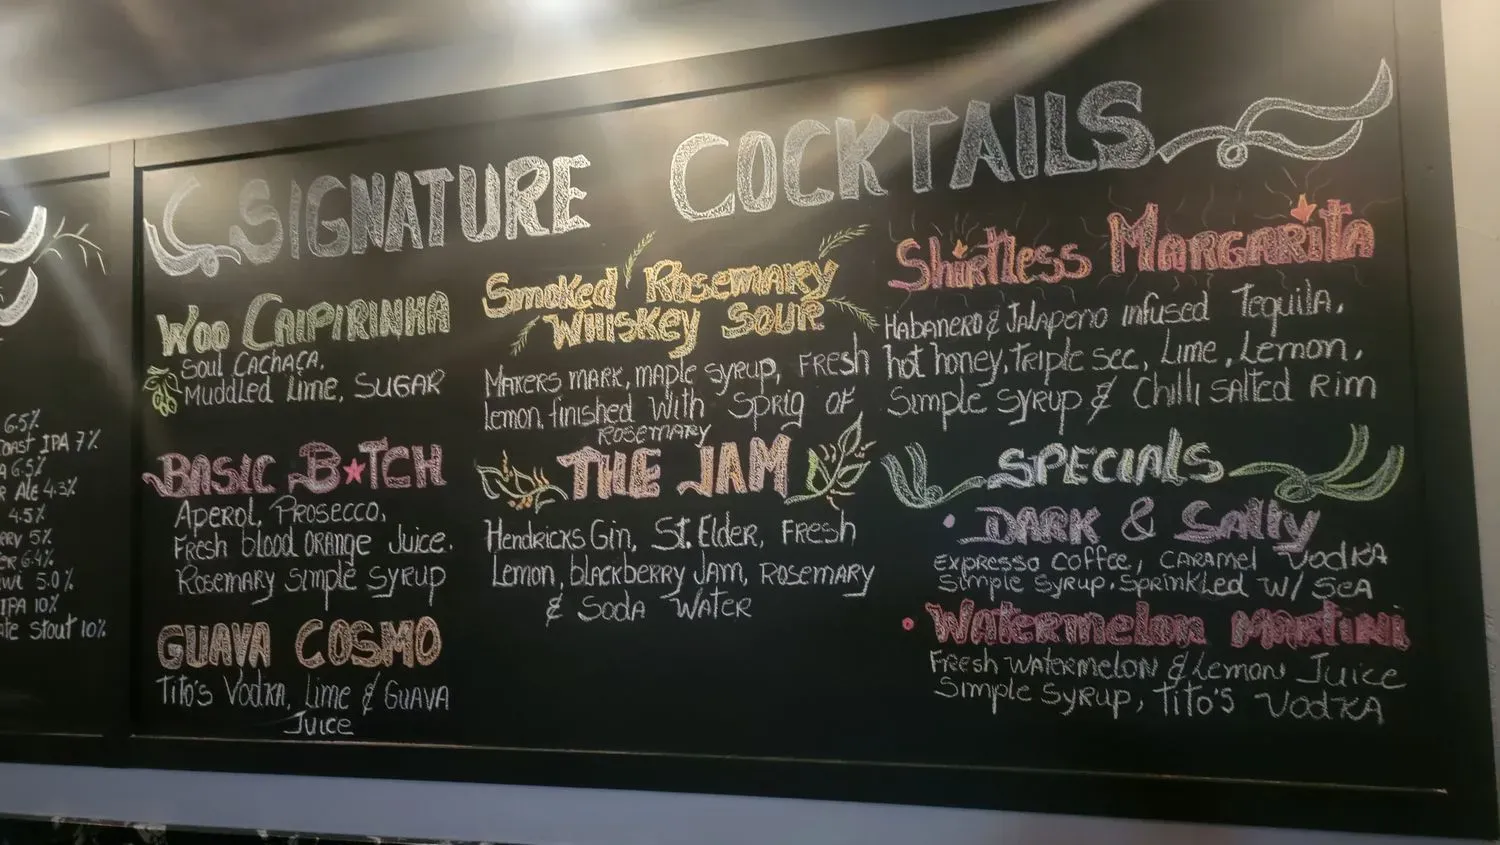 6.5%
OAST IPA 7%
A 6.5%
R ALE 4.3%
4.5%
RRY 5%
ER 6.4%
WI 5.0%
IPA 10%
ATE STOUT 10%
SIGNATURE COCKTAILS
Woo CAIPIRINHA
Soul CACHAÇA,
Muddled Lime, SUGAR
BASIC B★TCH
Aperol, PROSECCO,
FRESH blood ORANGE Juice.
ROSEMARY Simple Syrup
GUAVA COSMO
Tito's Vodka, Lime & GUAVA
Juice
Smoked Rosemary
WHISKEY SOUR
MAKERS MARK, MAPLE SYRUP, FRESH
lemon, finished with SPRIG OF
ROSEMARY
THE JAM
Hendricks Gin, St. Elder, FRESH
Lemon, blackberry JAM, ROSEMARY
& SODA WATER
Shirtless MARGARITA
HABANERO & JALAPENO infused Tequila,
hot honey, TRIPLE SEC, Lime, Lemon,
Simple SYRUP & Chilli SALTED RIM
SPECIALS
• DARK & Salty
EXPRESSO COFFEE, CARAMEL VODKA
Simple SYRUP, SPRINKLED W/ SEA
• Watermelon MARTINI
FRESH WATERMELON & Lemon Juice
Simple SYRUP, TITO'S VODKA